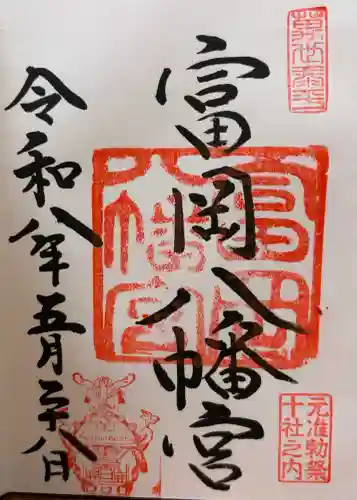 萬世泰平
元准勅祭
十社之内
富岡八幡宮
富岡八幡宮
令和八年五月二十八日